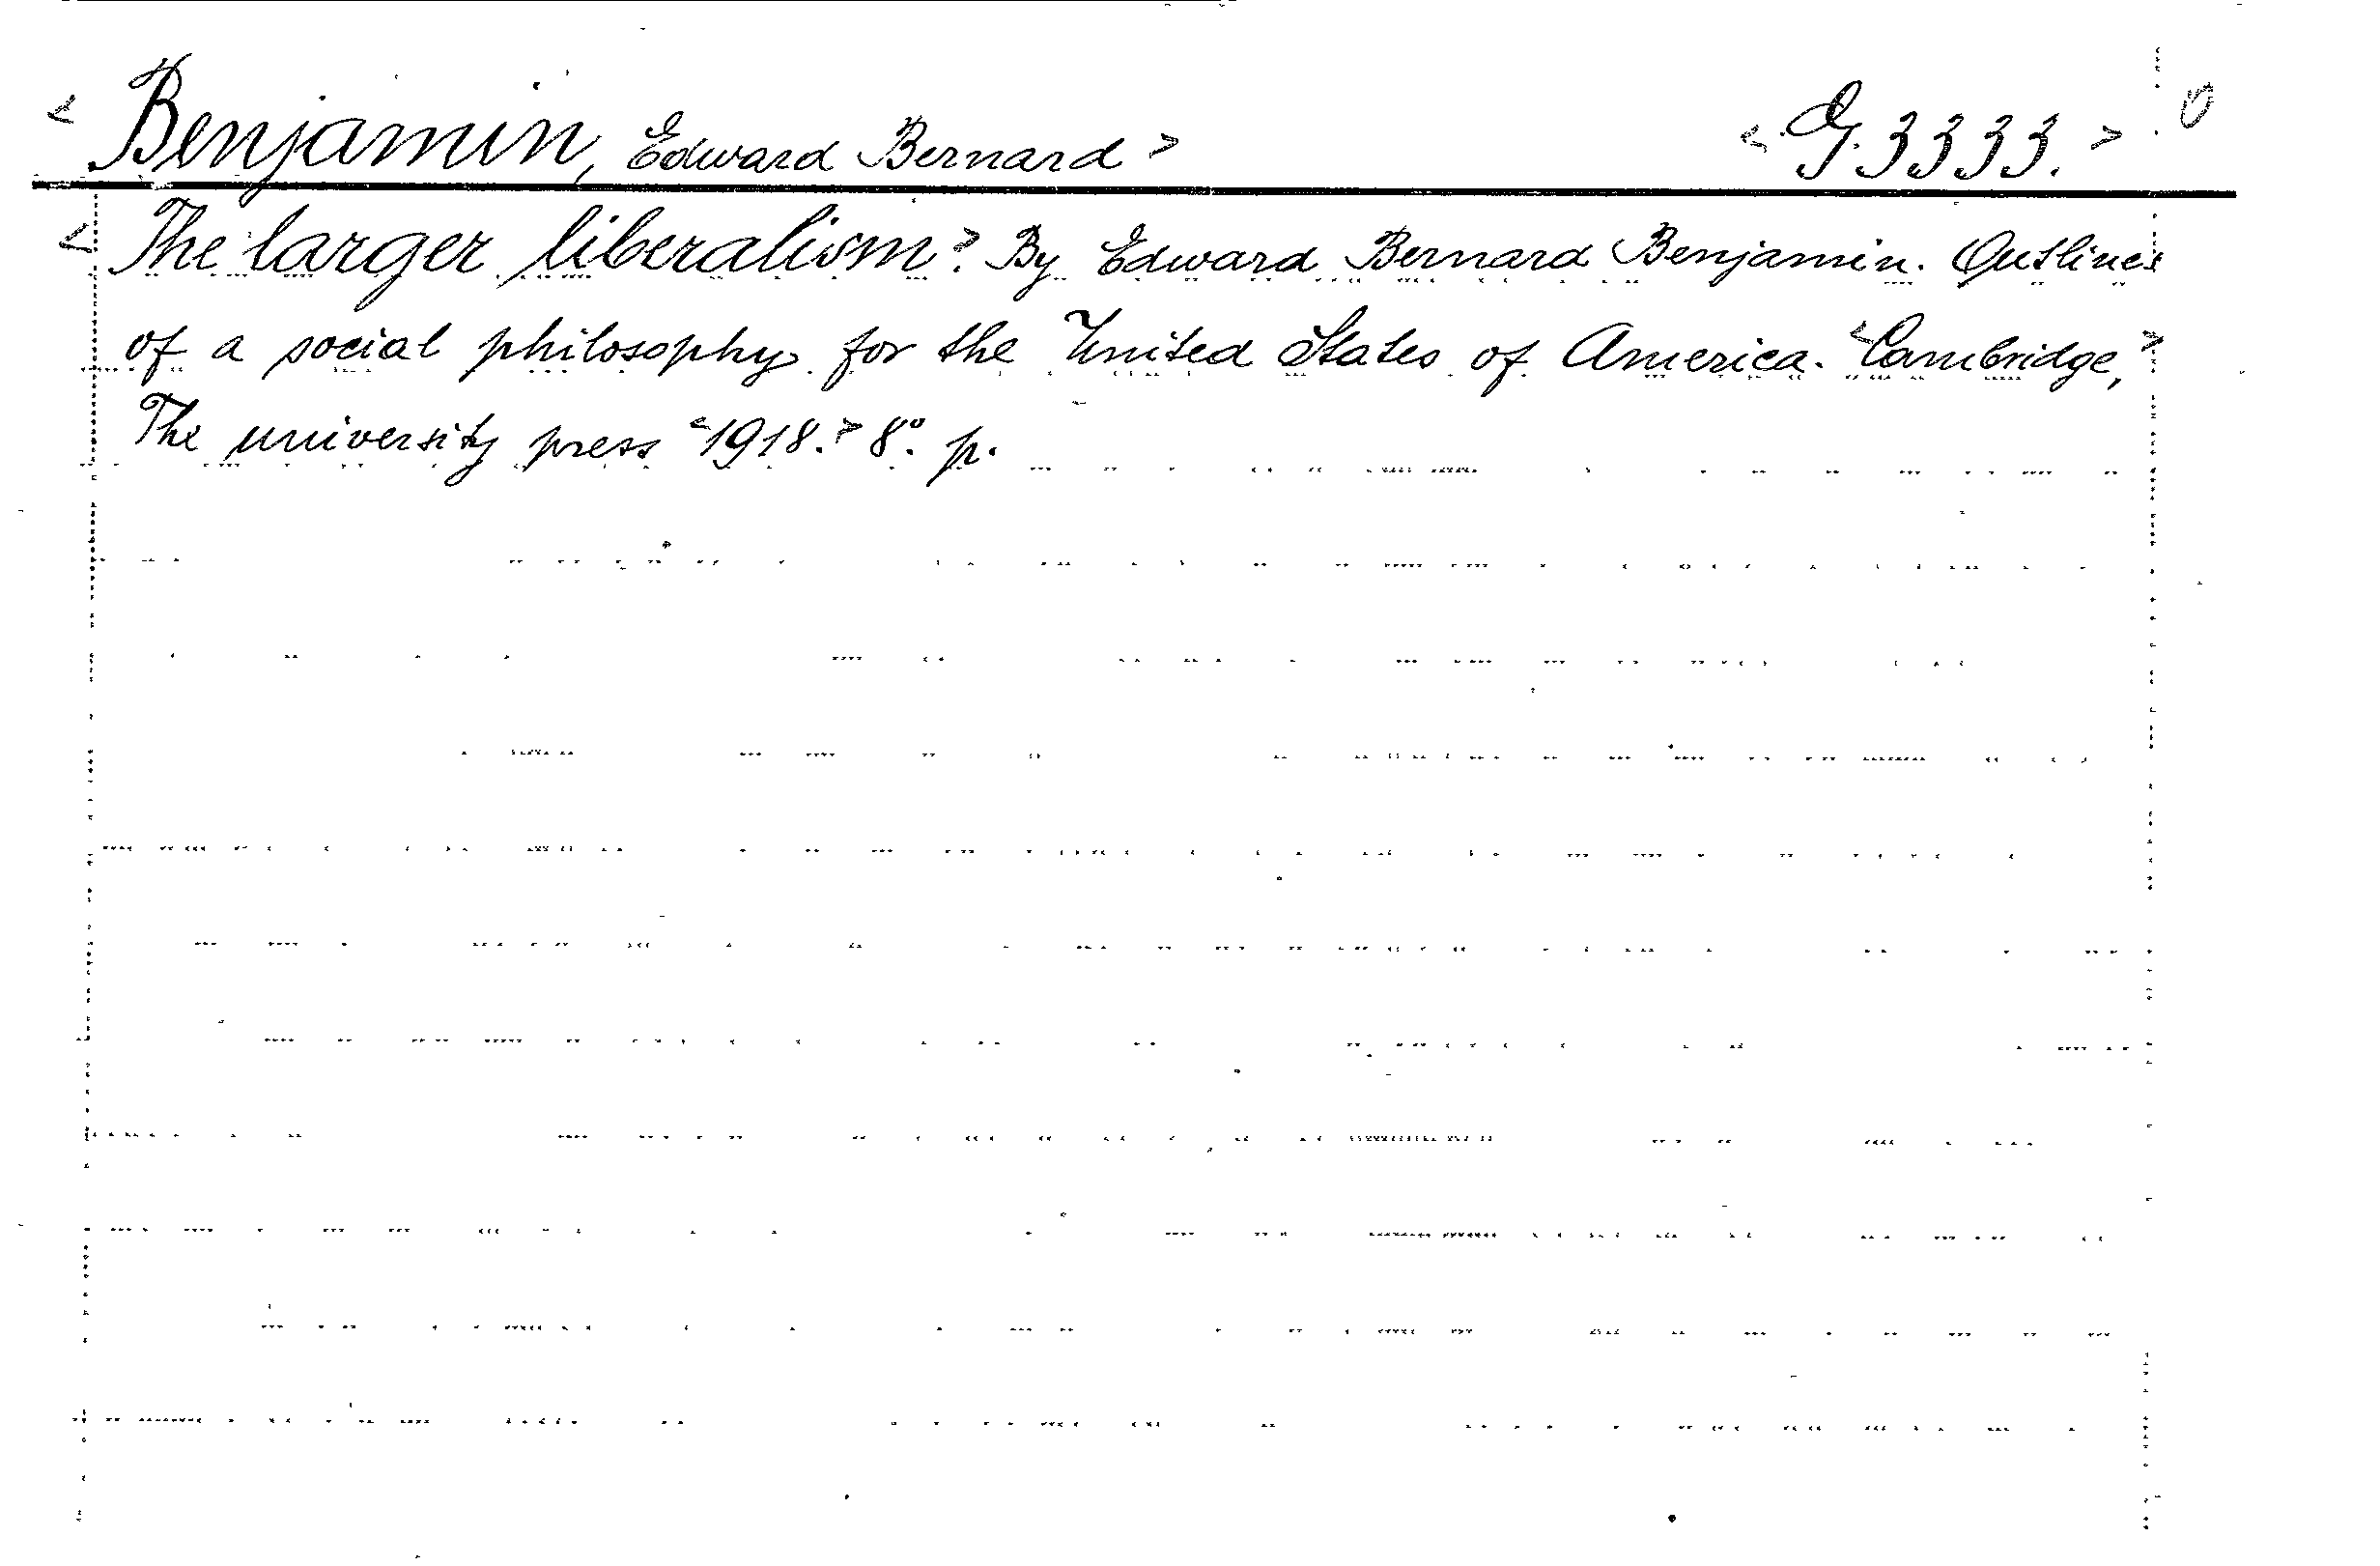 < Benjamin, Edward Bernard > < G. 3333. > 0
< The larger liberalism >. By Edward Bernard Benjamin. Outlines
of a social philosophy for the United States of America. < Cambridge, >
The university press < 1918. > 8°. p.